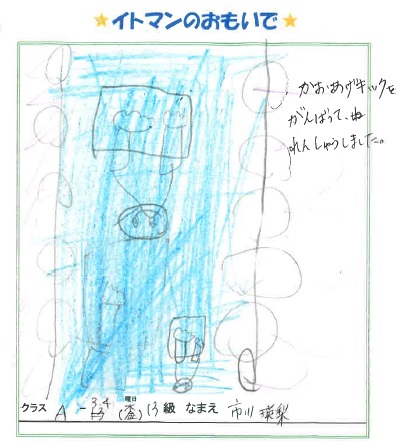 ★イトマンのおもいで★
かおあげキックを
がんばって、ね
れんしゅうしました。
クラス A - 3.4 13 曜日 (金) 13 級 なまえ 市川 瑛梨